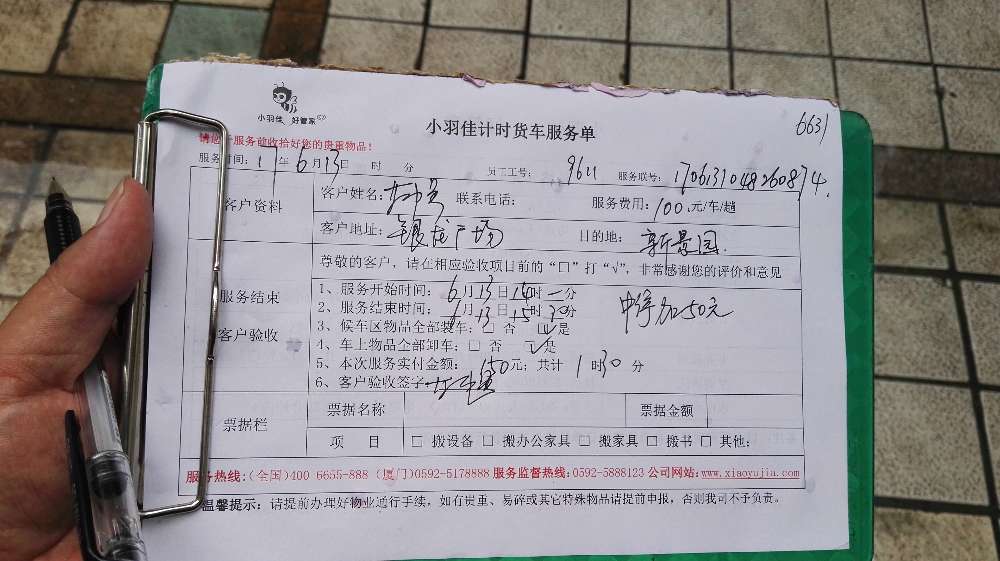 小羽佳 好管家
小羽佳计时货车服务单
6631
服务前收拾好您的贵重物品！
服务时间：17年6月13日 时 分 员工工号： 9611 服务联号：1706131048260874
客户资料
客户姓名： 联系电话： 服务费用：100元/车/趟
客户地址：银龙广场 目的地：新景园
尊敬的客户，请在相应验收项目前的“□”打“√”，非常感谢您的评价和意见
服务结束
客户验收
1、服务开始时间：6月13日14时 分
2、服务结束时间：6月13日15时30分
加50元
3、候车区物品全部装车：□ 否 ☑是
4、车上物品全部卸车：□ 否 ☑是
5、本次服务实付金额：150元；共计 1时30分
6、客户验收签字
票据栏
票据名称 票据金额
项 目 □ 搬设备 □ 搬办公家具 □ 搬家具 □ 搬书 □ 其他：
服务热线：(全国)400 6655-888 (厦门)0592-5178888 服务监督热线：0592-5888123 公司网站：www.xiaoyujia.com
温馨提示：请提前办理好物业通行手续，如有贵重、易碎或其它特殊物品请提前申报，否则我司不予负责。